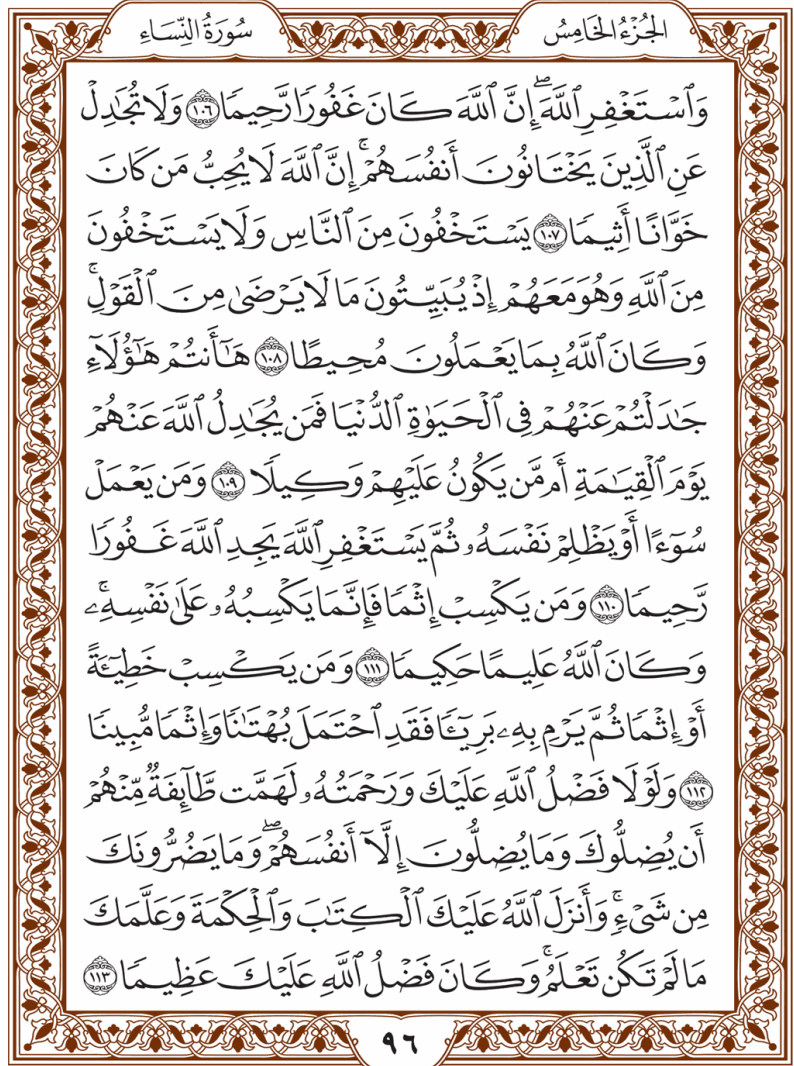 الجُزْءُ الخَامِسُ
سُورَةُ النِّسَاءِ
وَٱسْتَغْفِرِ ٱللَّهَۖ إِنَّ ٱللَّهَ كَانَ غَفُورٗا رَّحِيمٗا ١٠٦ وَلَا تُجَٰدِلۡ
عَنِ ٱلَّذِينَ يَخۡتَانُونَ أَنفُسَهُمۡۚ إِنَّ ٱللَّهَ لَا يُحِبُّ مَن كَانَ
خَوَّانًا أَثِيمٗا ١٠٧ يَسۡتَخۡفُونَ مِنَ ٱلنَّاسِ وَلَا يَسۡتَخۡفُونَ
مِنَ ٱللَّهِ وَهُوَ مَعَهُمۡ إِذۡ يُبَيِّتُونَ مَا لَا يَرۡضَىٰ مِنَ ٱلۡقَوۡلِۚ
وَكَانَ ٱللَّهُ بِمَا يَعۡمَلُونَ مُحِيطًا ١٠٨ هَٰٓأَنتُمۡ هَٰٓؤُلَآءِ
جَٰدَلۡتُمۡ عَنۡهُمۡ فِي ٱلۡحَيَوٰةِ ٱلدُّنۡيَا فَمَن يُجَٰدِلُ ٱللَّهَ عَنۡهُمۡ
يَوۡمَ ٱلۡقِيَٰمَةِ أَم مَّن يَكُونُ عَلَيۡهِمۡ وَكِيلٗا ١٠٩ وَمَن يَعۡمَلۡ
سُوٓءًا أَوۡ يَظۡلِمۡ نَفۡسَهُۥ ثُمَّ يَسۡتَغۡفِرِ ٱللَّهَ يَجِدِ ٱللَّهَ غَفُورٗا
رَّحِيمٗا ١١٠ وَمَن يَكۡسِبۡ إِثۡمٗا فَإِنَّمَا يَكۡسِبُهُۥ عَلَىٰ نَفۡسِهِۦۚ
وَكَانَ ٱللَّهُ عَلِيمًا حَكِيمٗا ١١١ وَمَن يَكۡسِبۡ خَطِيٓـَٔةً
أَوۡ إِثۡمٗا ثُمَّ يَرۡمِ بِهِۦ بَرِيٓـٔٗا فَقَدِ ٱحۡتَمَلَ بُهۡتَٰنٗا وَإِثۡمٗا مُّبِينٗا
١١٢ وَلَوۡلَا فَضۡلُ ٱللَّهِ عَلَيۡكَ وَرَحۡمَتُهُۥ لَهَمَّت طَّآئِفَةٞ مِّنۡهُمۡ
أَن يُضِلُّوكَ وَمَا يُضِلُّونَ إِلَّآ أَنفُسَهُمۡۖ وَمَا يَضُرُّونَكَ
مِن شَيۡءٖۚ وَأَنزَلَ ٱللَّهُ عَلَيۡكَ ٱلۡكِتَٰبَ وَٱلۡحِكۡمَةَ وَعَلَّمَكَ
مَا لَمۡ تَكُن تَعۡلَمُۚ وَكَانَ فَضۡلُ ٱللَّهِ عَلَيۡكَ عَظِيمٗا ١١٣
٩٦